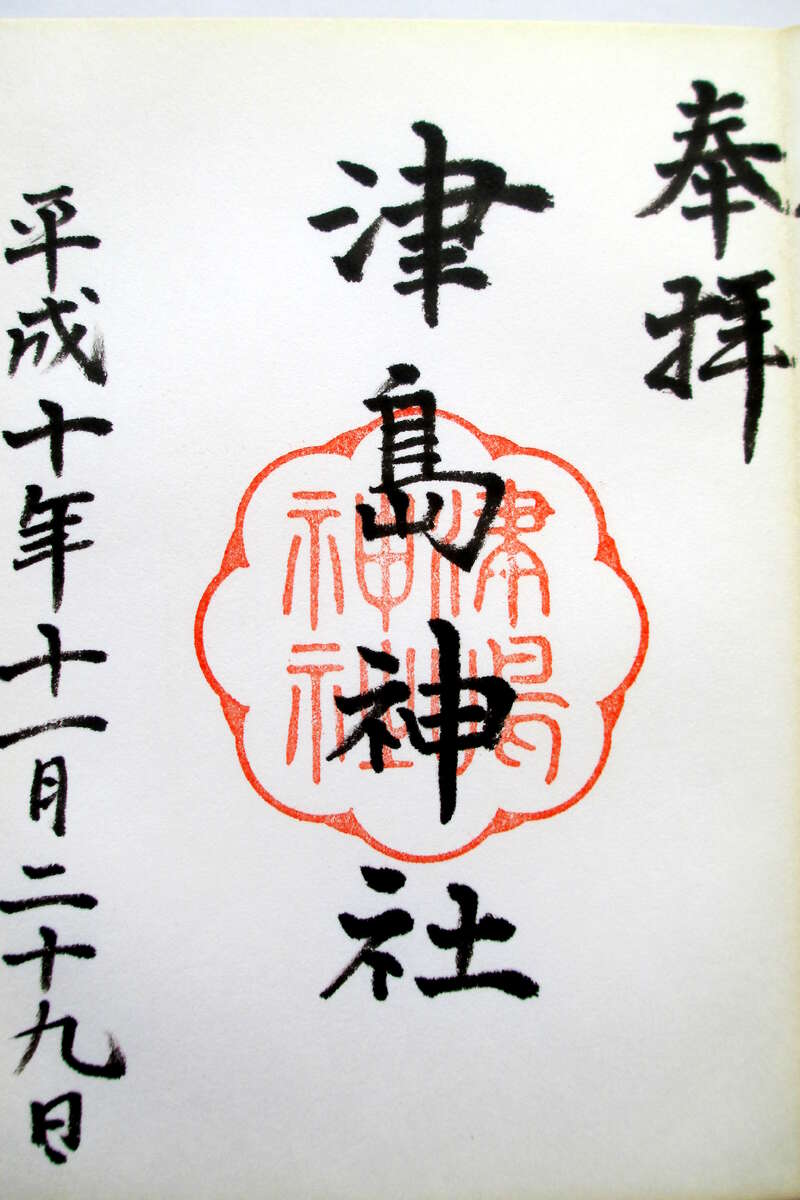 奉拝
津島神社
津島神社
平成十年十一月二十九日